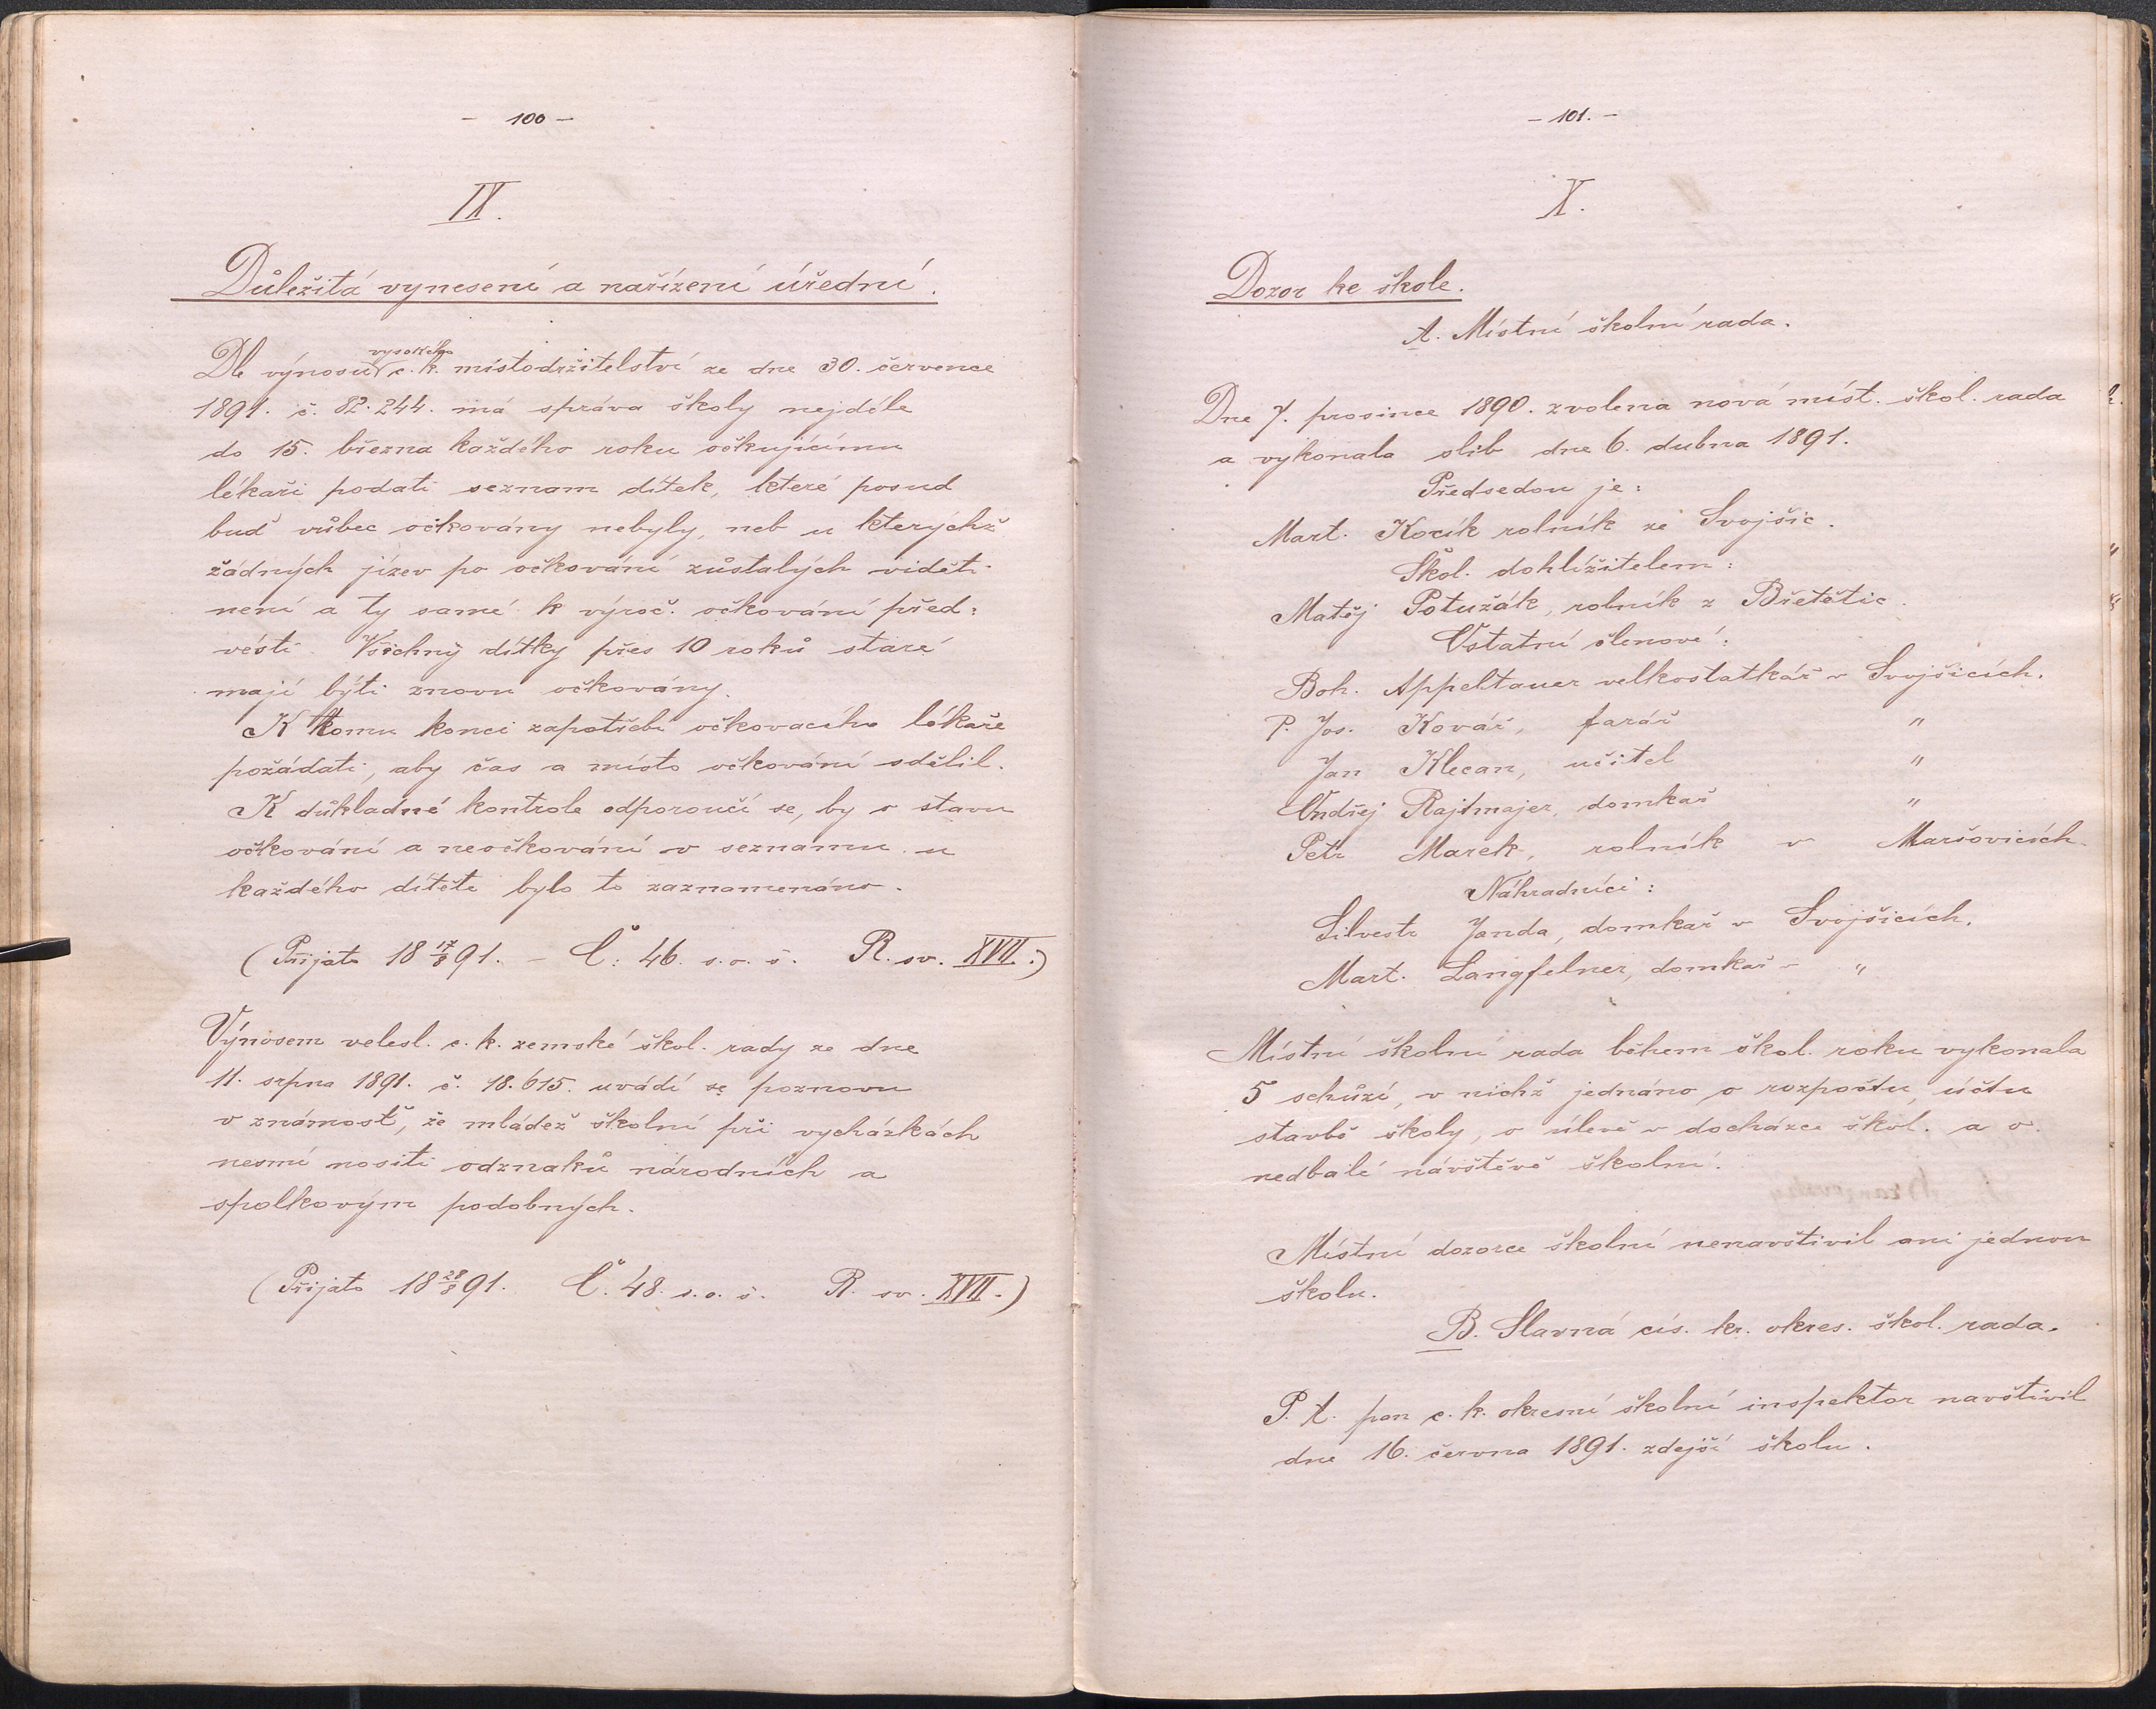 - 100 -
IX.
Důležitá vynesení a nařízení úřední.
Dle výnosu vysokého c. k. místodržitelství ze dne 30. července
1891. č. 82.244. má správa školy nejdéle
do 15. března každého roku očkujícímu
lékaři podati seznam dítek, které posud
buď vůbec očkovány nebyly, neb u kterýchž
žádných jizev po očkování zůstalých viděti
není a ty samé k výroč. očkování před=
vésti. Všichny dítky přes 10 roků staré
mají býti znovu očkovány.
K tomu konci zapotřebí očkovacího lékaře
požádati, aby čas a místo očkování sdělil.
K důkladné kontrole odporoučí se, by o stavu
očkování a neočkování v seznamu u
každého dítěte bylo to zaznamenáno.
(Přijato 18 17/8 91. - Č: 46. s. o. š. R. sv. XVII.)
Výnosem velesl. c. k. zemské škol. rady ze dne
11. srpna 1891. č. 18.615. uvádí se poznovu
v známosť, že mládež školní při vycházkách
nesmí nositi odznaků národních a
spolkovým podobných.
(Přijato 18 28/8 91. Č. 48. s. o. š. R. sv. XVII.)
- 101. -
X.
Dozor ke škole.
A. Místní školní rada.
Dne 7. prosince 1890. zvolena nová míst. škol. rada
a vykonala slib dne 6. dubna 1891.
Předsedou je:
Mart. Kocík rolník ze Svojšic.
Škol. dohlížitelem:
Matěj Potužák, rolník z Břetětic.
Ostatní členové:
Boh. Appeltauer velkostatkář v Svojšicích.
P. Jos. Kovář, farář "
Jan Klecan, učitel "
Ondřej Rajtmajer, domkař "
Petr Marek, rolník v Maršovicích.
Náhradníci:
Silvestr Janda, domkař v Svojšicích.
Mart. Langfelner, domkař v "
Místní školní rada během škol. roku vykonala
5 schůzí, v nichž jednáno o rozpočtu, účtu
stavbě školy, o úlevě v docházce škol. a o
nedbalé návštěvě školní.
Místní dozorce školní nenavštivil ani jednou
školu.
B. Slavná cís. kr. okres. škol. rada.
P. t. pan c. k. okresní školní inspektor navštívil
dne 16. června 1891. zdejší školu.